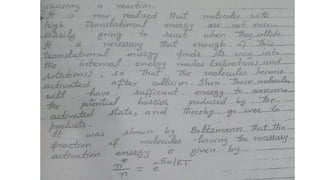 causing a reaction.
It is now realized that molecules with
high translational energy are not nece-
ssarily going to react when they collide.
It is necessary that enough of this
translational energy finds its way into
the internal energy modes (vibrations and
rotations), so that the molecules become
activated after collision. Then these molecules
will have sufficient energy to overcome
the potential barrier produced by the
activated state, and thereby go over to
products.
It was shown by Boltzmann that the
fraction of molecules having the necessary
activation energy is given by
n*/n = e^-Ea/RT